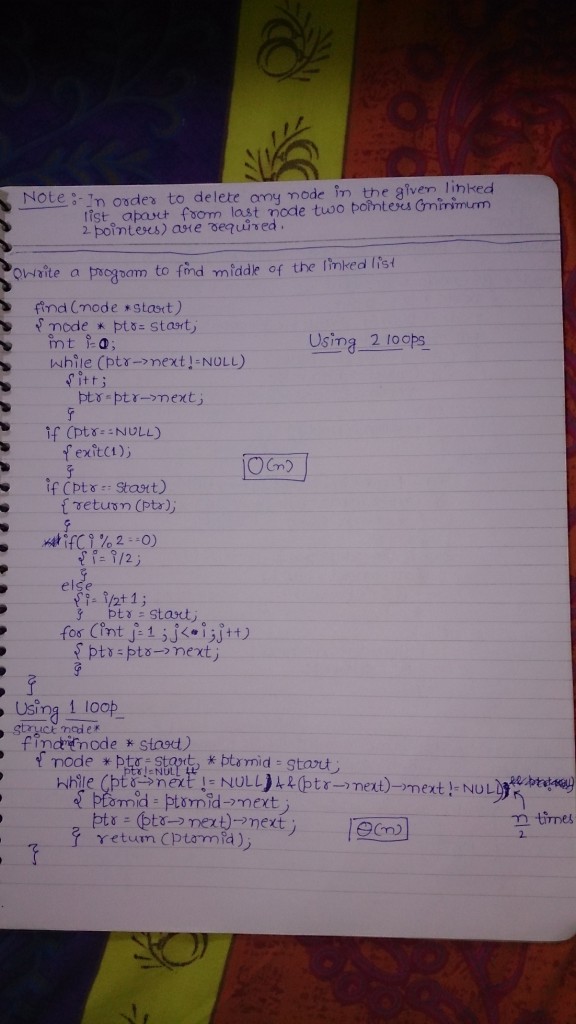 Note :- In order to delete any node in the given linked
list apart from last node two pointers (minimum
2 pointers) are required.
Q Write a program to find middle of the linked list
find (node *start)
{ node * ptr = start;
int i=0;
Using 2 loops
while (ptr->next!=NULL)
{ i++;
ptr=ptr->next;
}
if (ptr==NULL)
{ exit(1);
}
O(n)
if (ptr == start)
{ return (ptr);
}
if (i%2==0)
{ i= i/2;
}
else
{ i= i/2+1;
} ptr = start;
for (int j=1; j<i; j++)
{ ptr=ptr->next;
}
}
Using 1 loop
struct node*
find (node * start)
{ node * ptr = start, * ptrmid = start;
ptr!=NULL &&
while (ptr->next != NULL) && (ptr->next)->next != NULL)
{ ptrmid = ptrmid->next;
ptr = (ptr->next)->next;
n/2 times
} return (ptrmid);
θ(n)
}